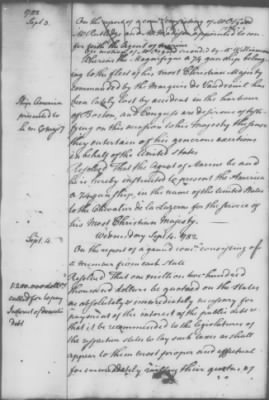 1782
Sept 3.
On the report of a comee consisting of Mr Osgood
Mr Rutledge and Mr Madison appointed to con-
fer with the Agent of Marine
On motion of Mr Osgood seconded by Mr Williamson
Whereas the Magnifique a 74 gun ship belong-
ing to the fleet of his most Christian Majesty
commanded by the Marquis de Vaudreuil has
been lately lost by accident in the harbour
of Boston, and Congress are desirous of testi-
fying on this occasion to his Majesty the sense
they entertain of his generous exertions
in behalf of the United States
Ship America
presented to
Resolved That the Agent of Marine be and
he is hereby instructed to present the America
a 74 gun ship in the name of the United States
to the Chevalier de la Luzerne for the service of
his Most Christian Majesty.
Sept. 4.
Wednesday Sept 4. 1782
On the report of a grand comee consisting of
a member from each state
1,200,000 dollars
called for to pay
Interest of domestic
debt
Resolved That one million two hundred
thousand dollars be quotaed on the states
as absolutely & immediately necessary for
payment of the interest of the public debt &
that it be recommended to the legislatures of
the respective states to lay such taxes as shall
appear to them most proper and effectual
for immediately raising their quotas of